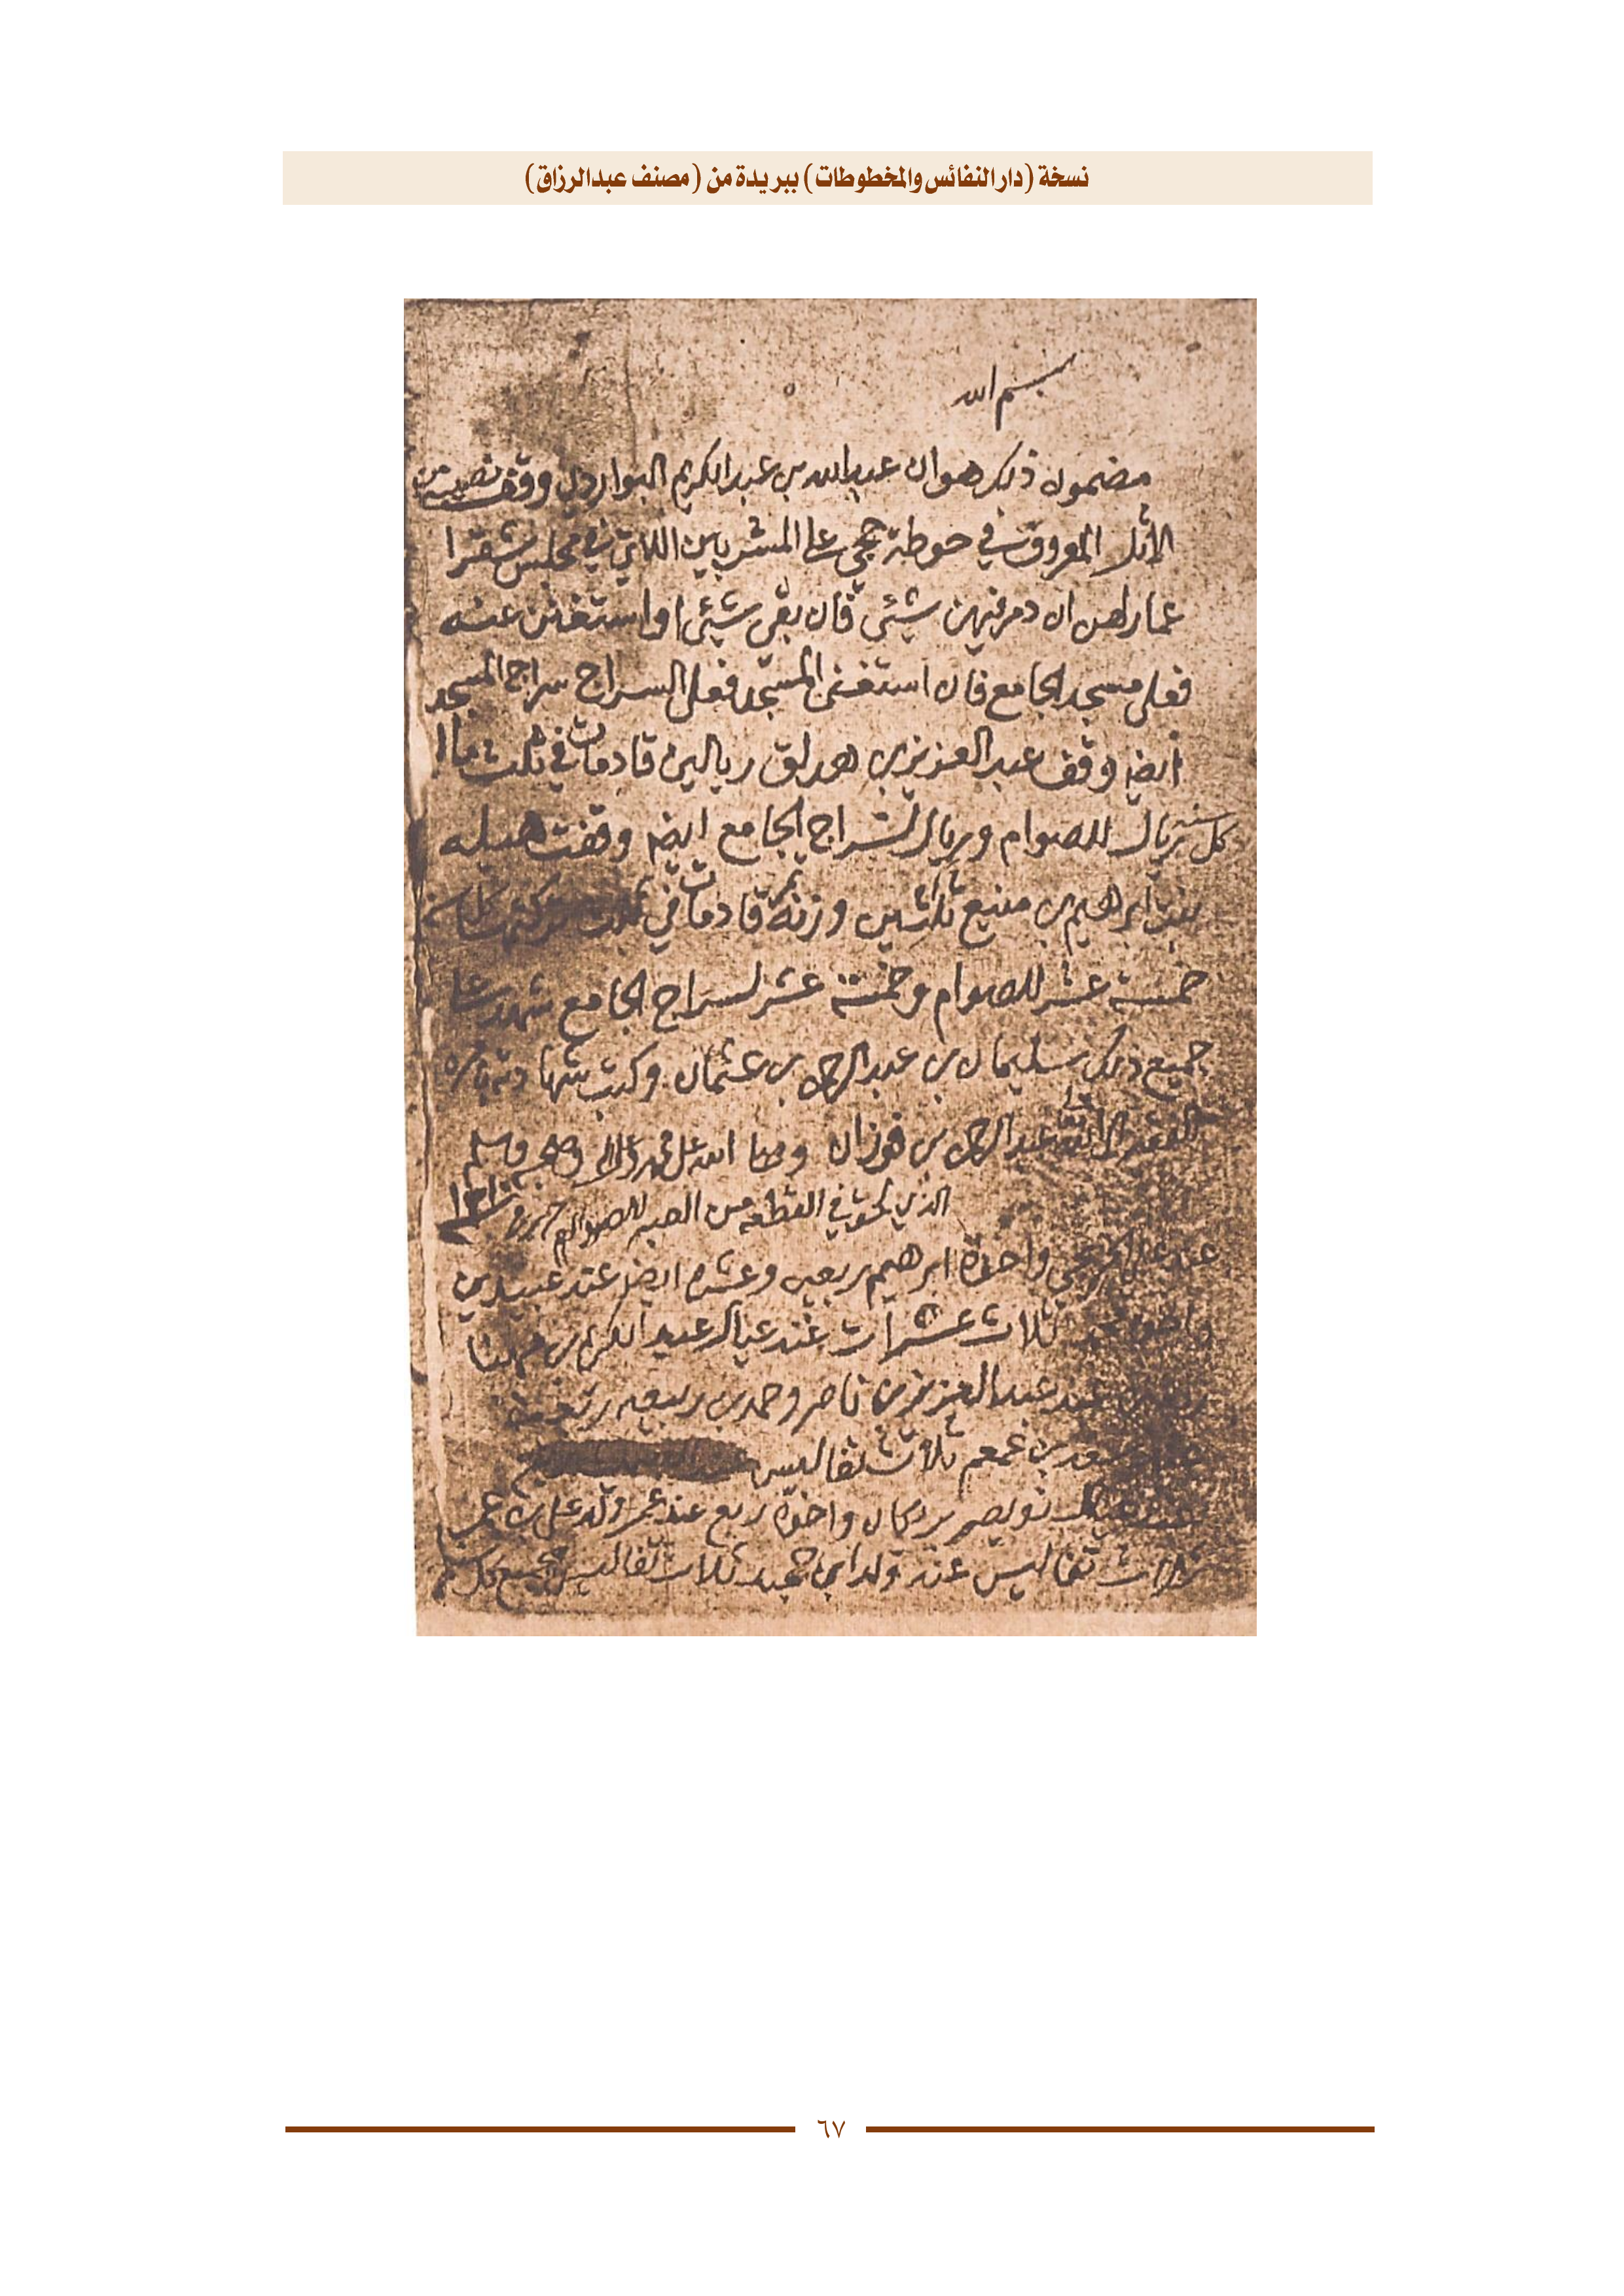 نسخة (دار النفائس والمخطوطات) ببريدة من (مصنف عبدالرزاق)
بسم الله
مضمون ذلك هو ان عبدالله بن عبدالكريم البواردي وقف نصيبه من
الاثل المعروق في حوطة حجي على المشربين اللاتي في مجلس شقرا
عمارلهن ان دمر فيهن شيئ فان بقي شيئ او استغنن عنه
فعلى مسجد الجامع فان استغنى المسجد فعلى السراج سراج المسجد
ايضا وقف عبدالعزيز بن هدلق ريالين قادمات في ثلث ماله
كل سنه ريال للصوام وريال لسراج الجامع ايضا وقفت هيله
بنت ابراهيم بن منيع ثلاثين وزنة تمر قادمات في كل سنه
خمسة عشر للصوام وخمسة عشر لسراج الجامع شهد على
جميع ذلك سليمان بن عبدالرحمن بن عثمان وكتب شهادته بامره
الفقير الى الله عبدالرحمن بن فوزان وصلى الله على محمد وعلى اله وصحبه وسلم
الذي في القطعه من العبه للصوام
عند علي واخوه ابراهيم ربعيه وعشره ايضا عند عبيد بن
ثلاث عشرات عند عيال عبدالكريم بن مهنا
عند عبدالعزيز بن ناصر وحمد بن ربيعه
سعد بن ثلاث تفاليس
عند عيال نويصر واخوه ربع عند ولد علي
ثلاث تفاليس عند ولد ابن حميد ثلاث تفاليس الجميع
٦٧